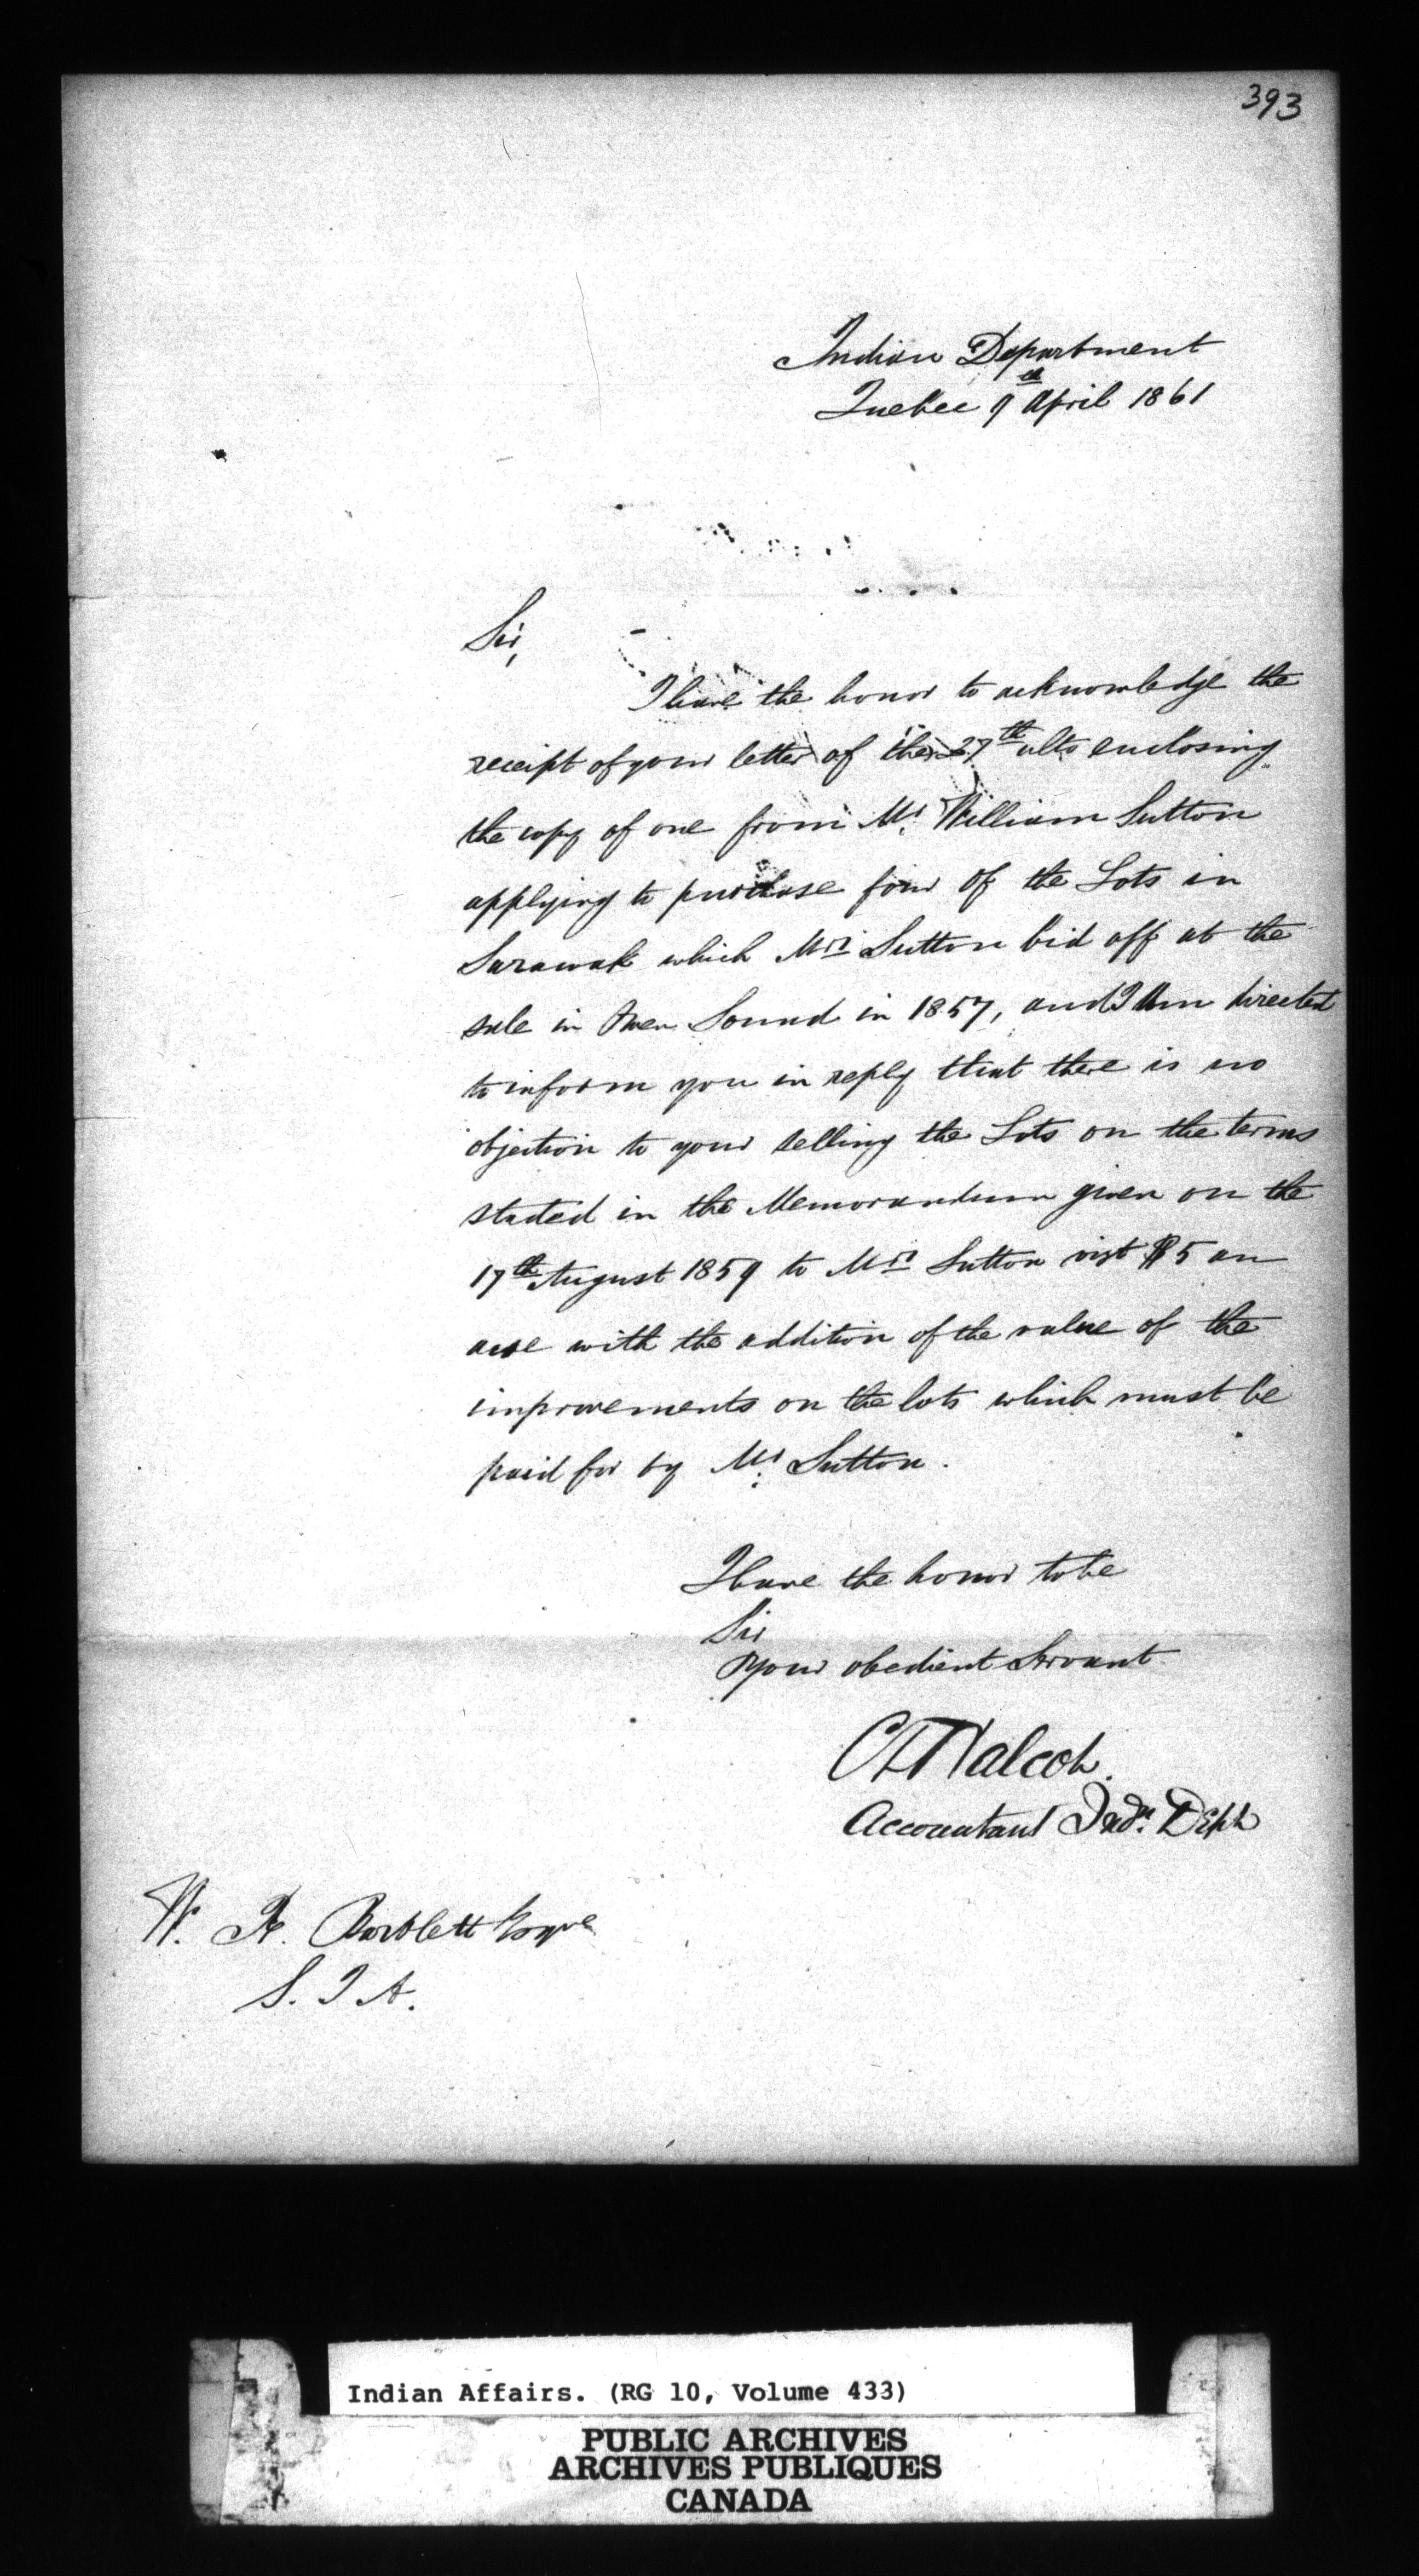 393
Indian Department
Quebec 9th April 1861
Sir,
I have the honor to acknowledge the
receipt of your letter of the 27th ulto enclosing
the copy of one from Mr. William Sutton
applying to purchase four of the Lots in
Sarawak which Mrs Sutton bid off at the
sale in Owen Sound in 1857, and I am directed
to inform you in reply that there is no
objection to your selling the Lots on the terms
stated in the Memorandum given on the
17th August 1859 to Mrs Sutton vizt $5 an
acre with the addition of the value of the
improvements on the lots which must be
paid for by Mr. Sutton.
I have the honor to be
Sir
Your obedient Servant
C T Walcot.
Accountant Indn. Dept
W. R. Bartlett Esqre
S. I A.
Indian Affairs. (RG 10, Volume 433)
PUBLIC ARCHIVES
ARCHIVES PUBLIQUES
CANADA